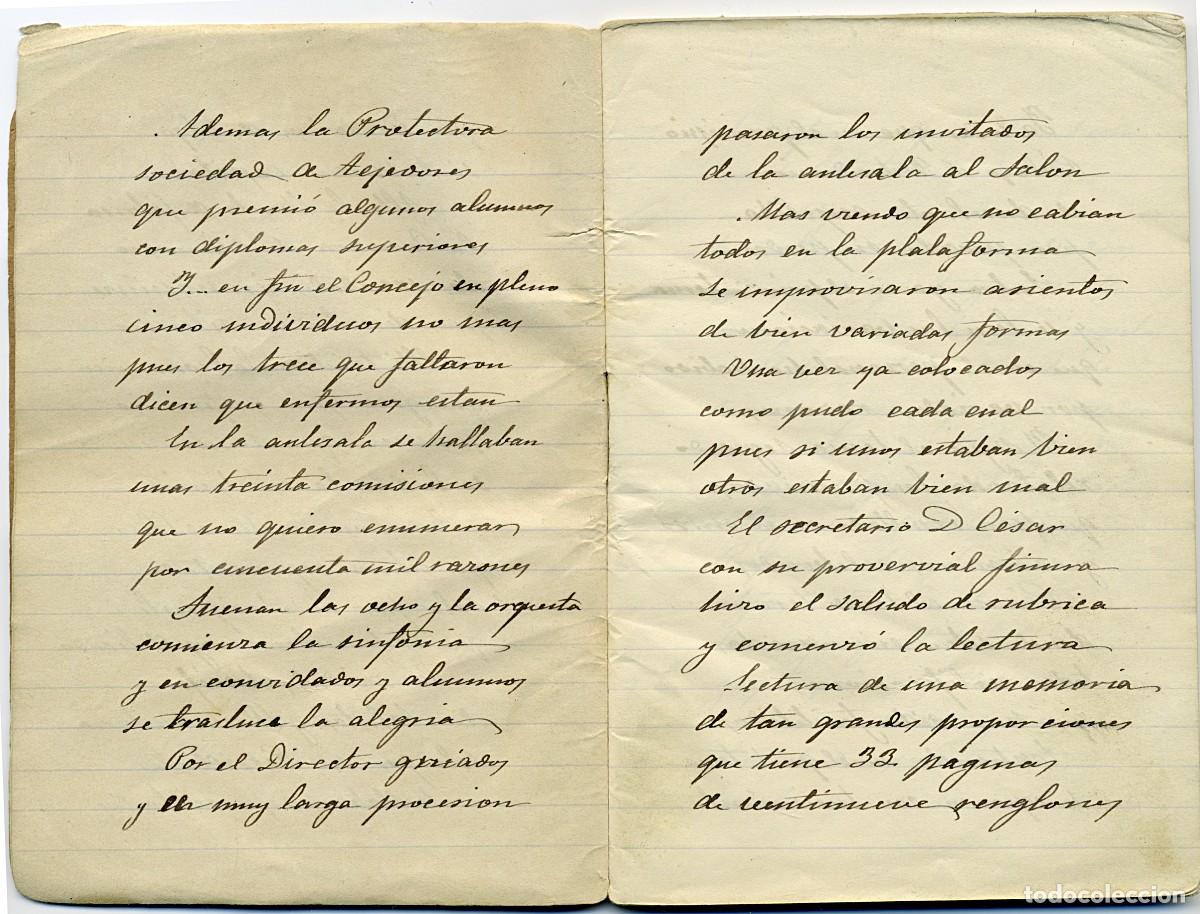 Ademas la Protectora
sociedad de tejedores
que premió algunos alumnos
con diplomas superiores
Y... en fin el Concejo en pleno
cinco individuos no mas
pues los trece que faltaron
dicen que enfermos estan
En la antesala se hallaban
unas treinta comisiones
que no quiero enumerar
por cincuenta mil razones
Suenan las ocho y la orquesta
comienza la sinfonia
y en convidados y alumnos
se trasluce la alegria
Por el Director guiados
y en muy larga procesion
pasaron los invitados
de la antesala al Salon
Mas viendo que no cabian
todos en la plataforma
se improvisaron asientos
de bien variadas formas
Una vez ya colocados
como pudo cada cual
pues si unos estaban bien
otros estaban bien mal
El secretario D César
con su provervial finura
hizo el saludo de rubrica
y comenzó la lectura
Lectura de una memoria
de tan grandes proporciones
que tiene 33 paginas
de ventinueve renglones
todocoleccion